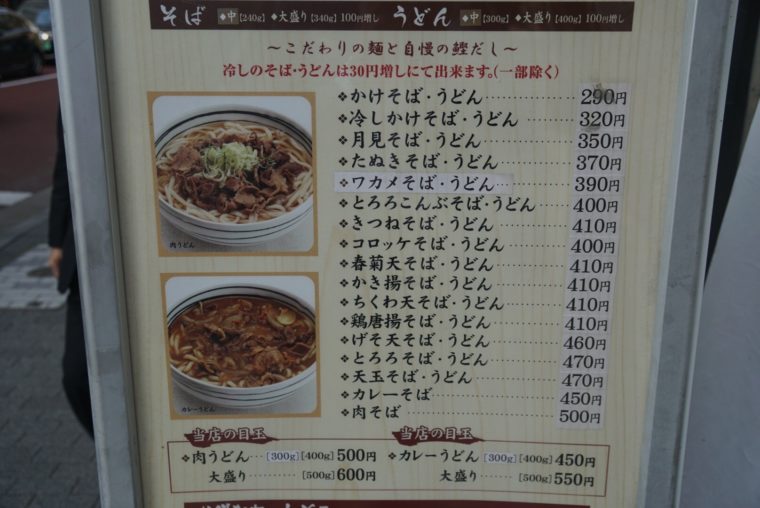 そば ◆中[240g] ◆大盛り[340g]100円増し うどん ◆中[300g] ◆大盛り[400g]100円増し
～こだわりの麺と自慢の鰹だし～
冷しのそば・うどんは30円増しにて出来ます。(一部除く)
❖かけそば・うどん 290円
❖冷しかけそば・うどん 320円
❖月見そば・うどん 350円
❖たぬきそば・うどん 370円
❖ワカメそば・うどん 390円
❖とろろこんぶそば・うどん 400円
❖きつねそば・うどん 410円
❖コロッケそば・うどん 400円
❖春菊天そば・うどん 410円
❖かき揚そば・うどん 410円
❖ちくわ天そば・うどん 410円
❖鶏唐揚そば・うどん 410円
❖げそ天そば・うどん 460円
❖とろろそば・うどん 470円
❖天玉そば・うどん 470円
❖カレーそば 450円
❖肉そば 500円
肉うどん
カレーうどん
当店の目玉
❖肉うどん [300g][400g] 500円
大盛り [500g] 600円
当店の目玉
❖カレーうどん [300g][400g] 450円
大盛り [500g] 550円